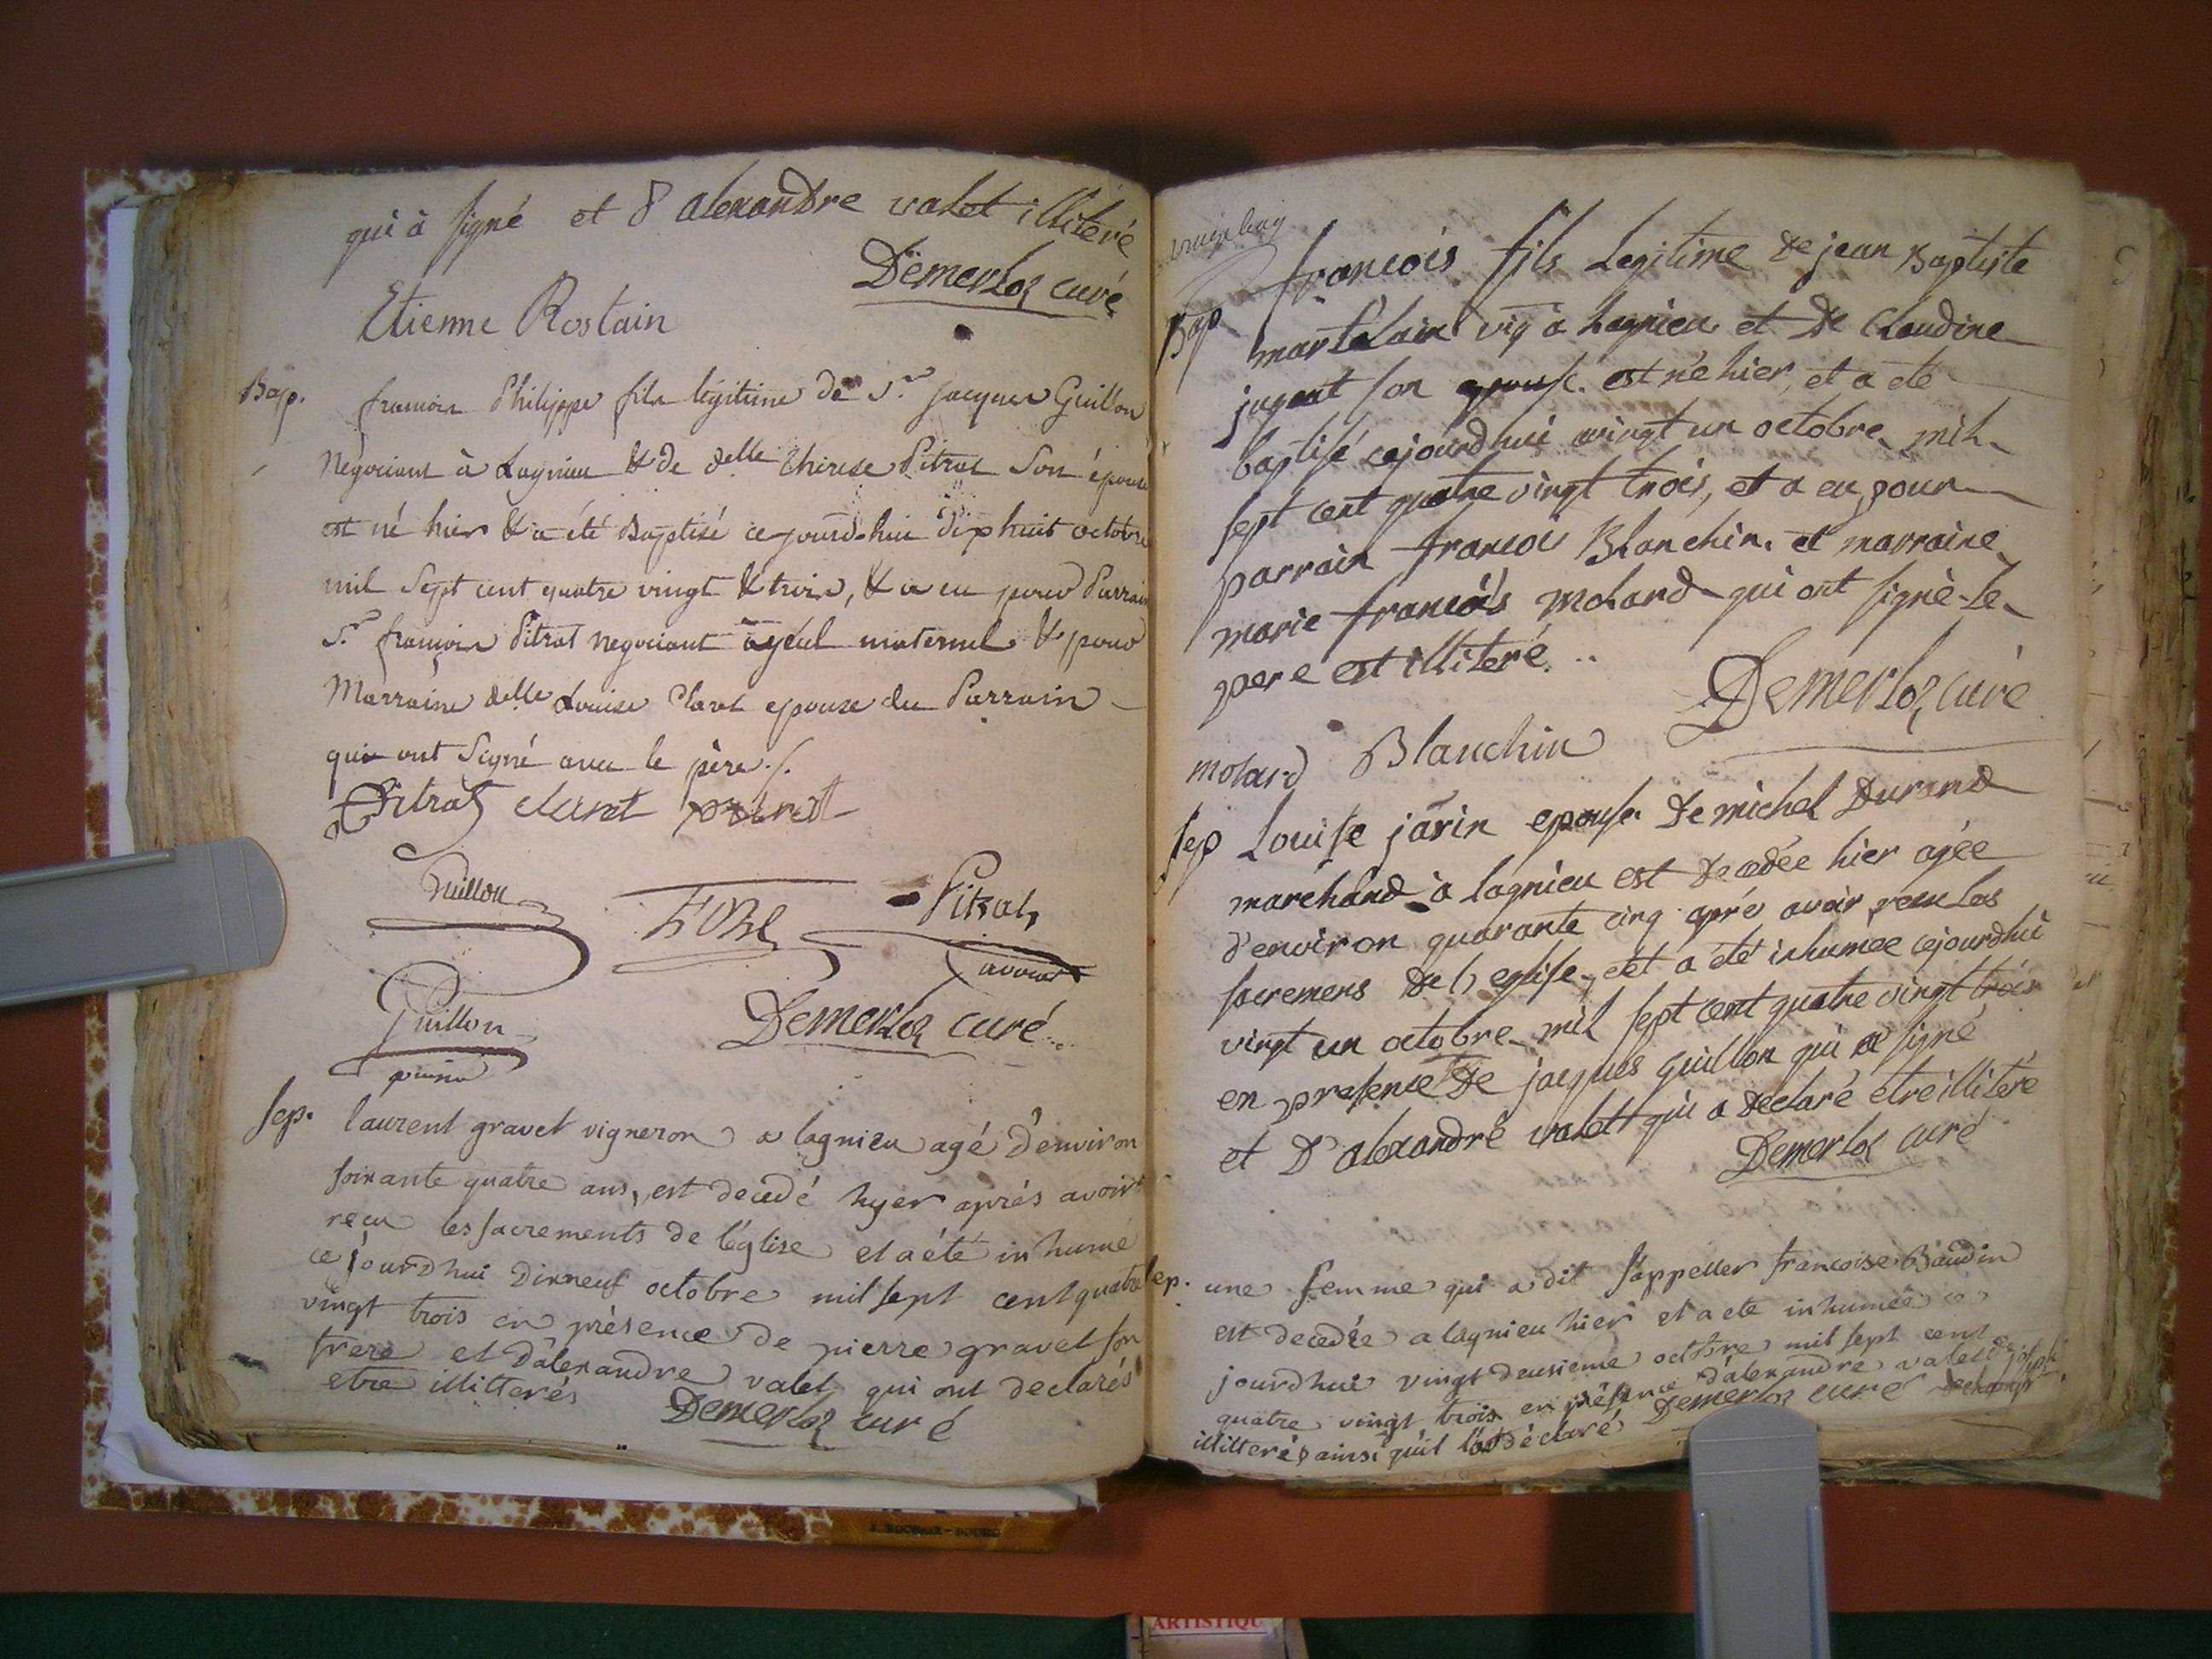 qui à signé et d alexandre valet illiteré
Demerloz curé
Etienne Rostain
Bap. francois Philippe fils légitime de Sr. Jacques Guillon
Négociant à Lagnieu & de delle Therese Pitrat Son épouse
est né hier & a été Baptisé ce jourd'hui dix huit octobre
mil Sept cent quatre vingt & trois, & a eu pour Parrain
Sr. françois Pitrat negociant ayeul maternel & pour
Marraine delle Louise Claret epouse du Parrain
qui ont Signé avec le père ./.
Pitrat claret
Guillon
Pitrat
avocat
Guillon
Demerloz curé
sep. laurent gravet vigneron a lagnieu agé d'environ
soixante quatre ans, est decedé hyer aprés avoir
reçu les sacrements de l'église et a été inhumé
ce jourdhui dixneuf octobre mil sept cent quatre
vingt trois en présence de pierre gravet son
frere et d'alexandre valet qui ont declarés
etre illitterés Demerloz curé
Bap francois fils legitime de jean Baptiste
martelain vig à lagnieu et de claudine
jugent son epouse est né hier, et a eté
baptisé cejourdhui vingt un octobre mil
sept cent quatre vingt trois, et a eu pour
parrain francois Blanchin et marraine
marie francois molard qui ont signè le
pere est illiteré..
Demerloz curé
molard Blanchin
sep Louise jarin epouse de michel Durand
marchand à lagnieu est decedée hier agée
d'environ quarante cinq apré avoir recu les
sacremens de l eglise, et a été inhumée cejourdhui
vingt un octobre mil sept cent quatre vingt trois
en presence de jacques guillon qui a signé
et d'alexandre valett qui a declaré etre illiteré
Demerloz curé
sep. une femme qui a dit s'appeller francoise Baudin
est decedée a lagnieu hier et a eté inhumée ce
jourdhui vingt deusieme octobre mil sept cent
quatre vingt trois en présence d'alexandre valet de joseph
illitteré ainsi qu'il l'a déclaré Demerloz curé
J. ROCHAIX - BOURG
ARTISTIQU